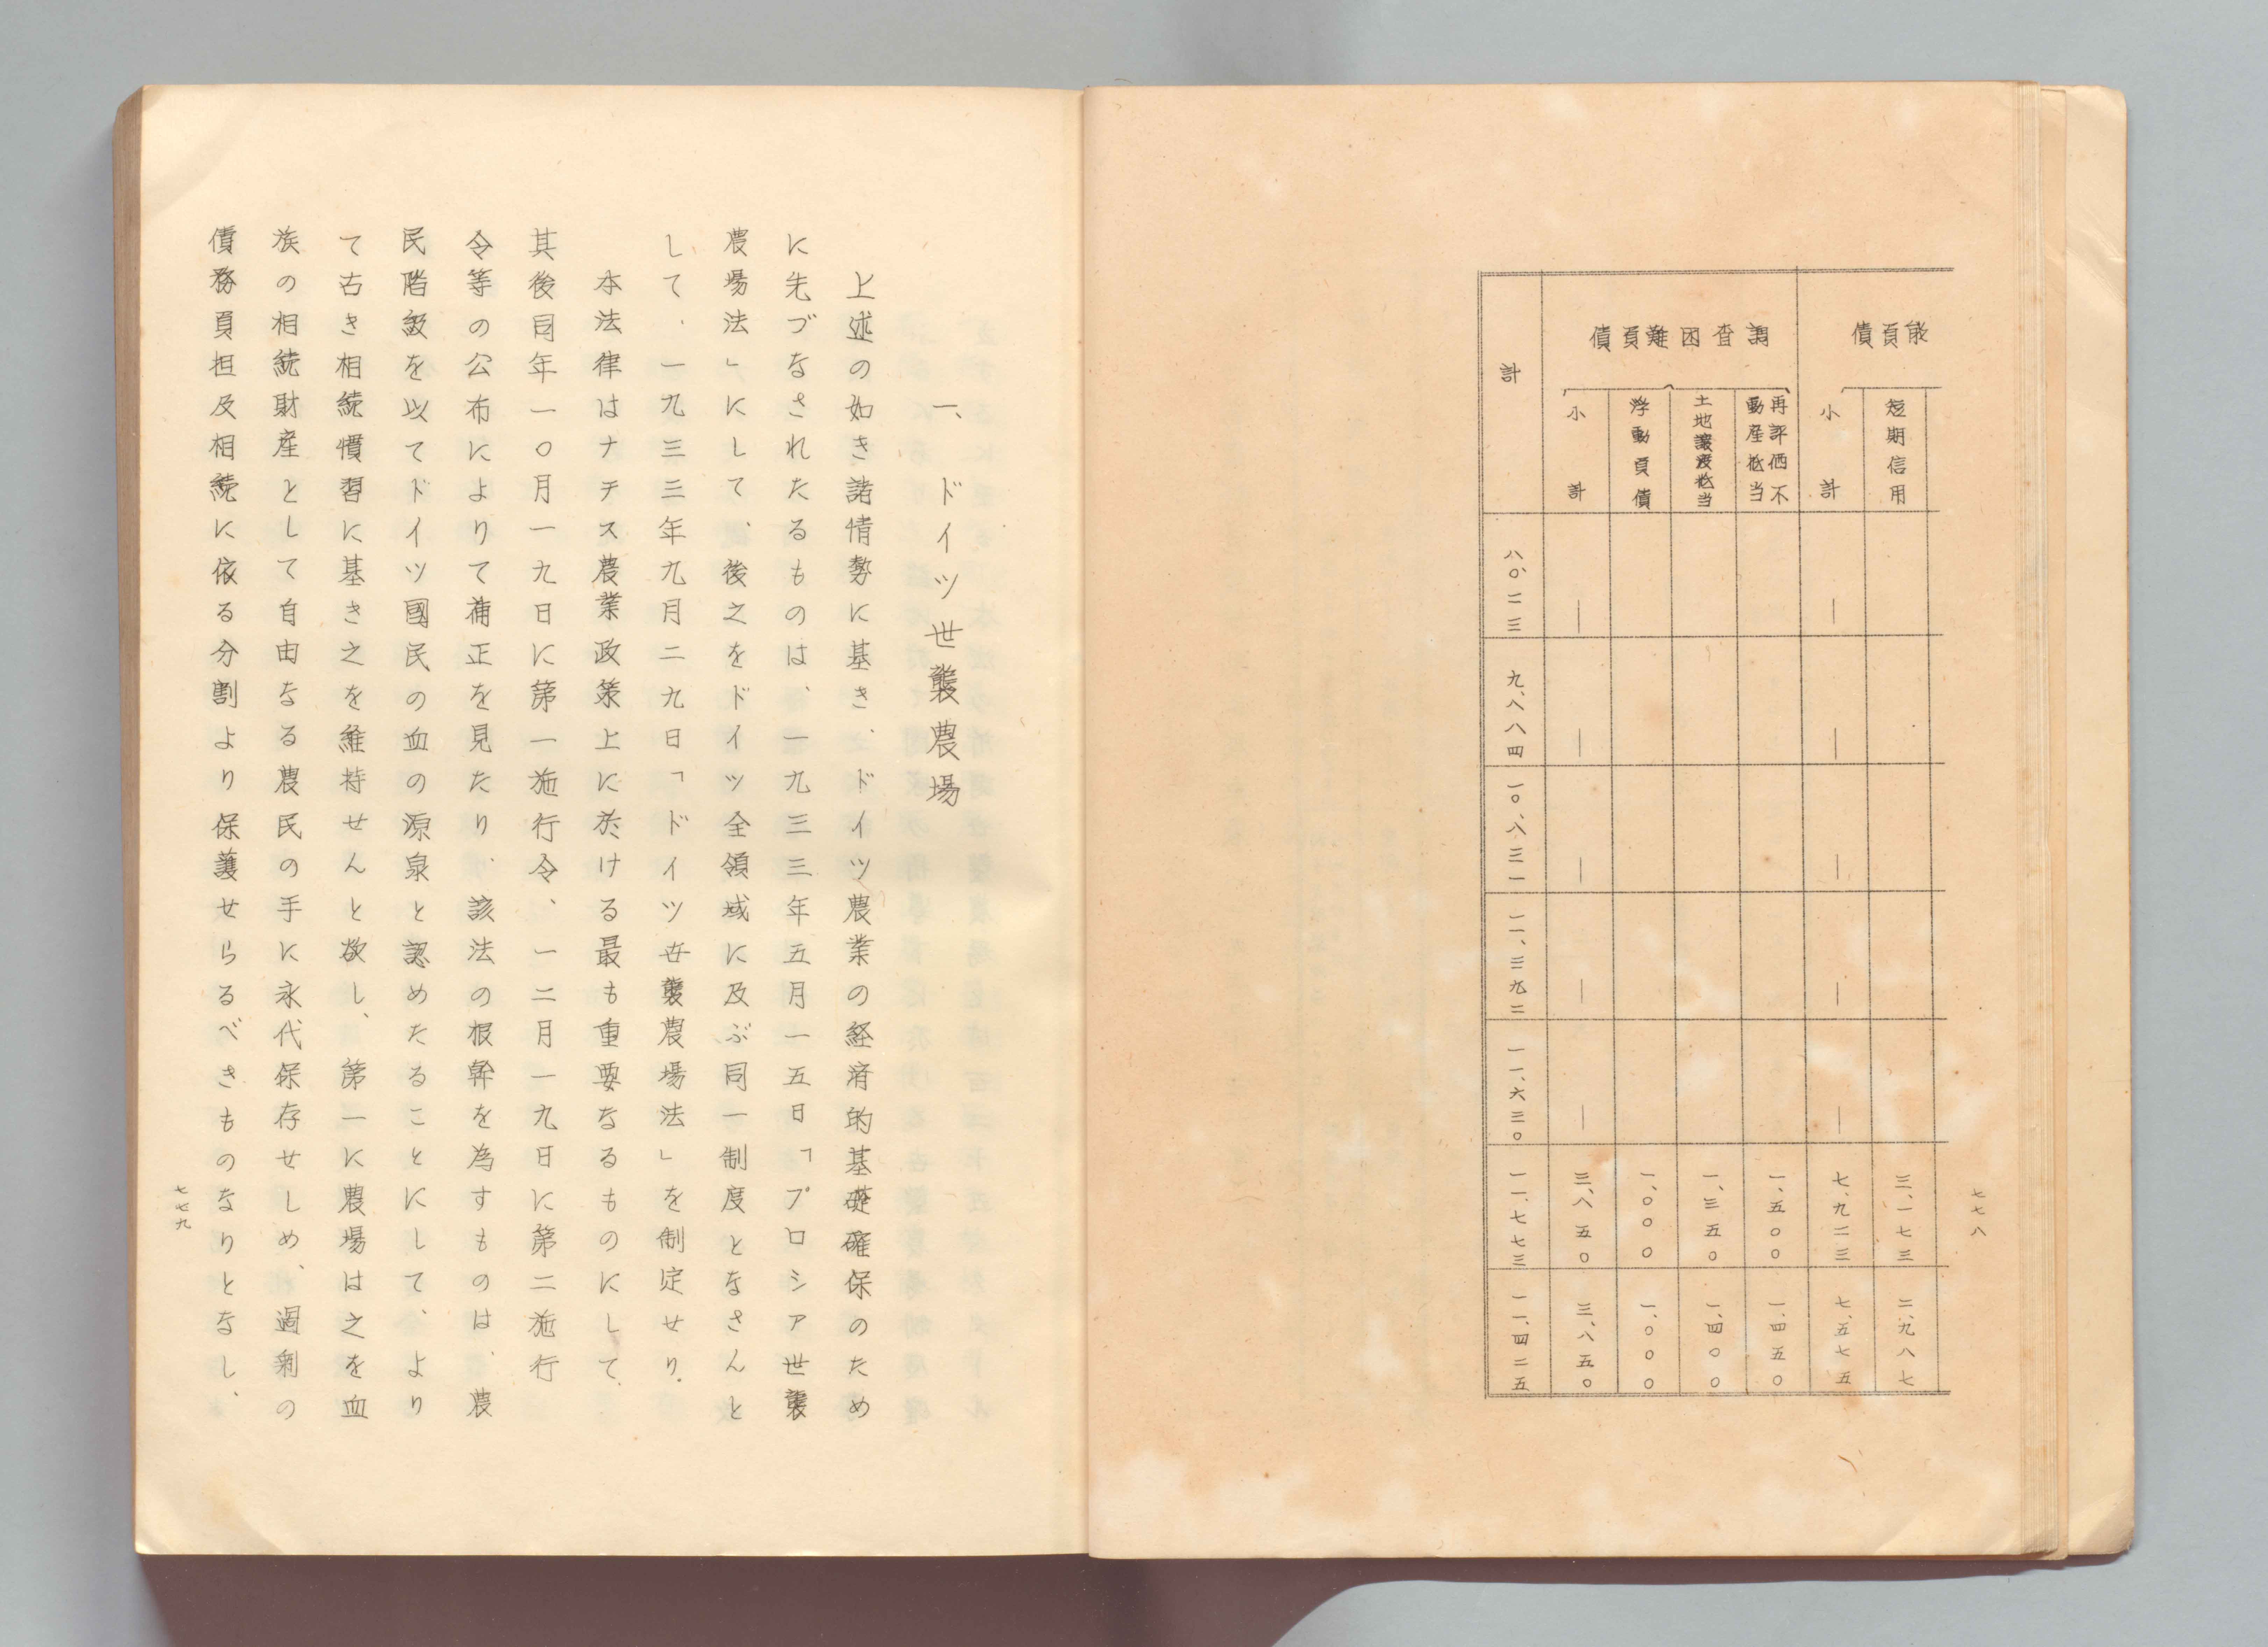 七七八
能負債
短期信用
三、一七三
二、九八七
小計
—
—
—
—
—
七、九二三
七、五七五
調査困難負債
再評価不
動産抵当
一、五〇〇
一、四五〇
土地譲渡抵当
一、三五〇
一、四〇〇
浮動負債
一、〇〇〇
一、〇〇〇
小計
—
—
—
—
—
三、八五〇
三、八五〇
計
八〇、二三
九、八八四
一〇、八三一
一一、三九二
一一、六三〇
一一、七七三
一一、四二五
一、ドイツ世襲農場
上述の如き諸情勢に基き、ドイツ農業の経済的基礎確保のため
に先づなされたるものは、一九三三年五月一五日「プロシア世襲
農場法」にして、後之をドイツ全領域に及ぶ同一制度となさんと
して、一九三三年九月二九日「ドイツ世襲農場法」を制定せり。
本法律はナチス農業政策上に於ける最も重要なるものにして、
其後同年一〇月一九日に第一施行令、一二月一九日に第二施行
令等の公布によりて補正を見たり、該法の根幹を為すものは、農
民階級を以てドイツ國民の血の源泉と認めたることにして、より
て古き相続慣習に基き之を維持せんと欲し、第一に農場は之を血
族の相続財産として自由なる農民の手に永代保存せしめ、過剰の
債務負担及相続に依る分割より保護せらるべきものなりとなし、
七七九